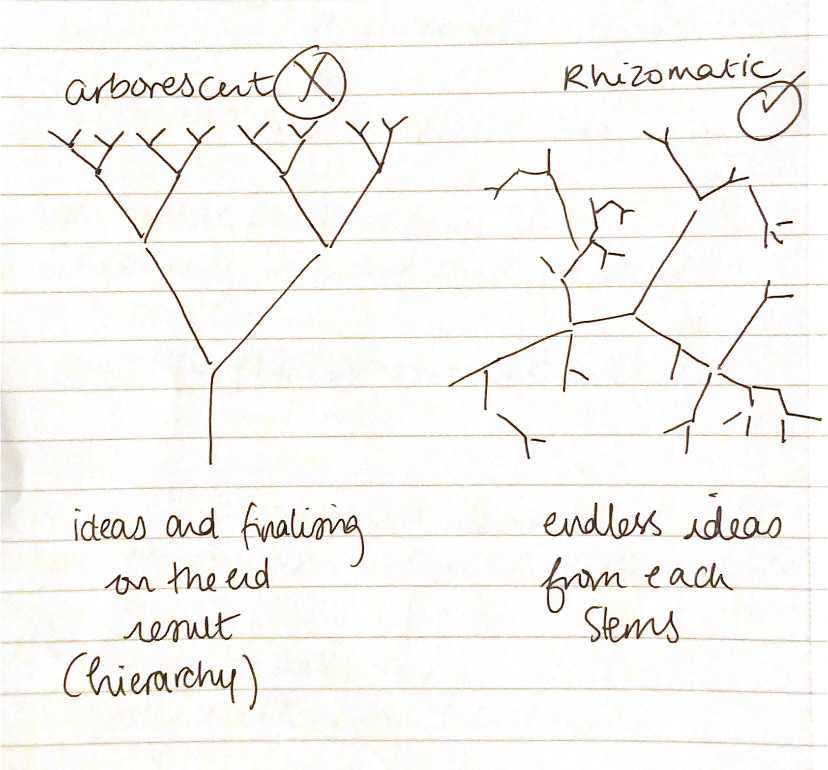 arborescent
Rhizomatic
ideas and finalising
on the end
result
(hierarchy)
endless ideas
from each
Stems